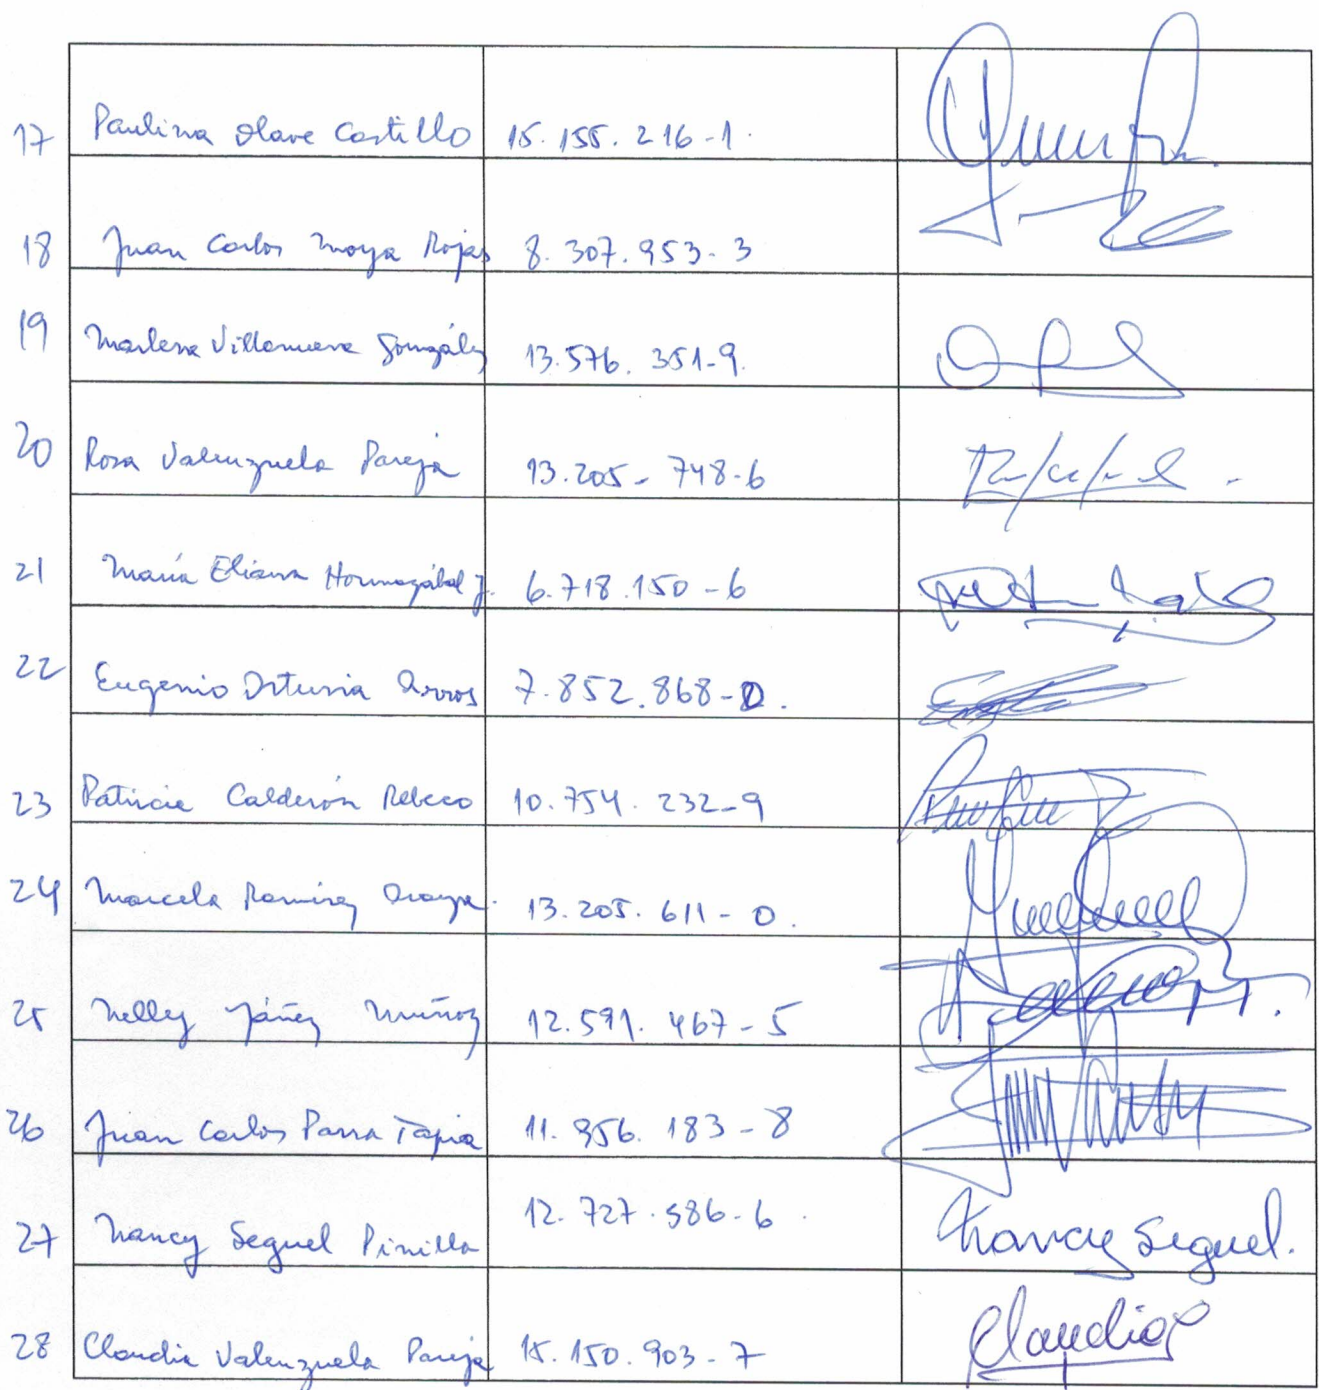 17 Paulina Olave Castillo 15.155.216-1.
18 Juan Carlos Moya Rojas 8.307.953-3
19 Marlene Villanueva González 13.576.351-9.
20 Rosa Valenzuela Pareja 13.205-748-6
21 María Eliana Hormazábal J. 6.718.150-6
22 Eugenio Orturia Arros 7.852.868-0.
23 Patricia Calderón Rebeco 10.754.232-9
24 Marcela Ramírez Araya. 13.205.611-0.
25 Nelly Yáñez Muñoz 12.591.467-5
26 Juan Carlos Parra Tapia 11.956.183-8
27 Nancy Seguel Pinilla 12.727.586-6. Nancy Seguel.
28 Claudia Valenzuela Pareja 15.150.903-7 Claudia